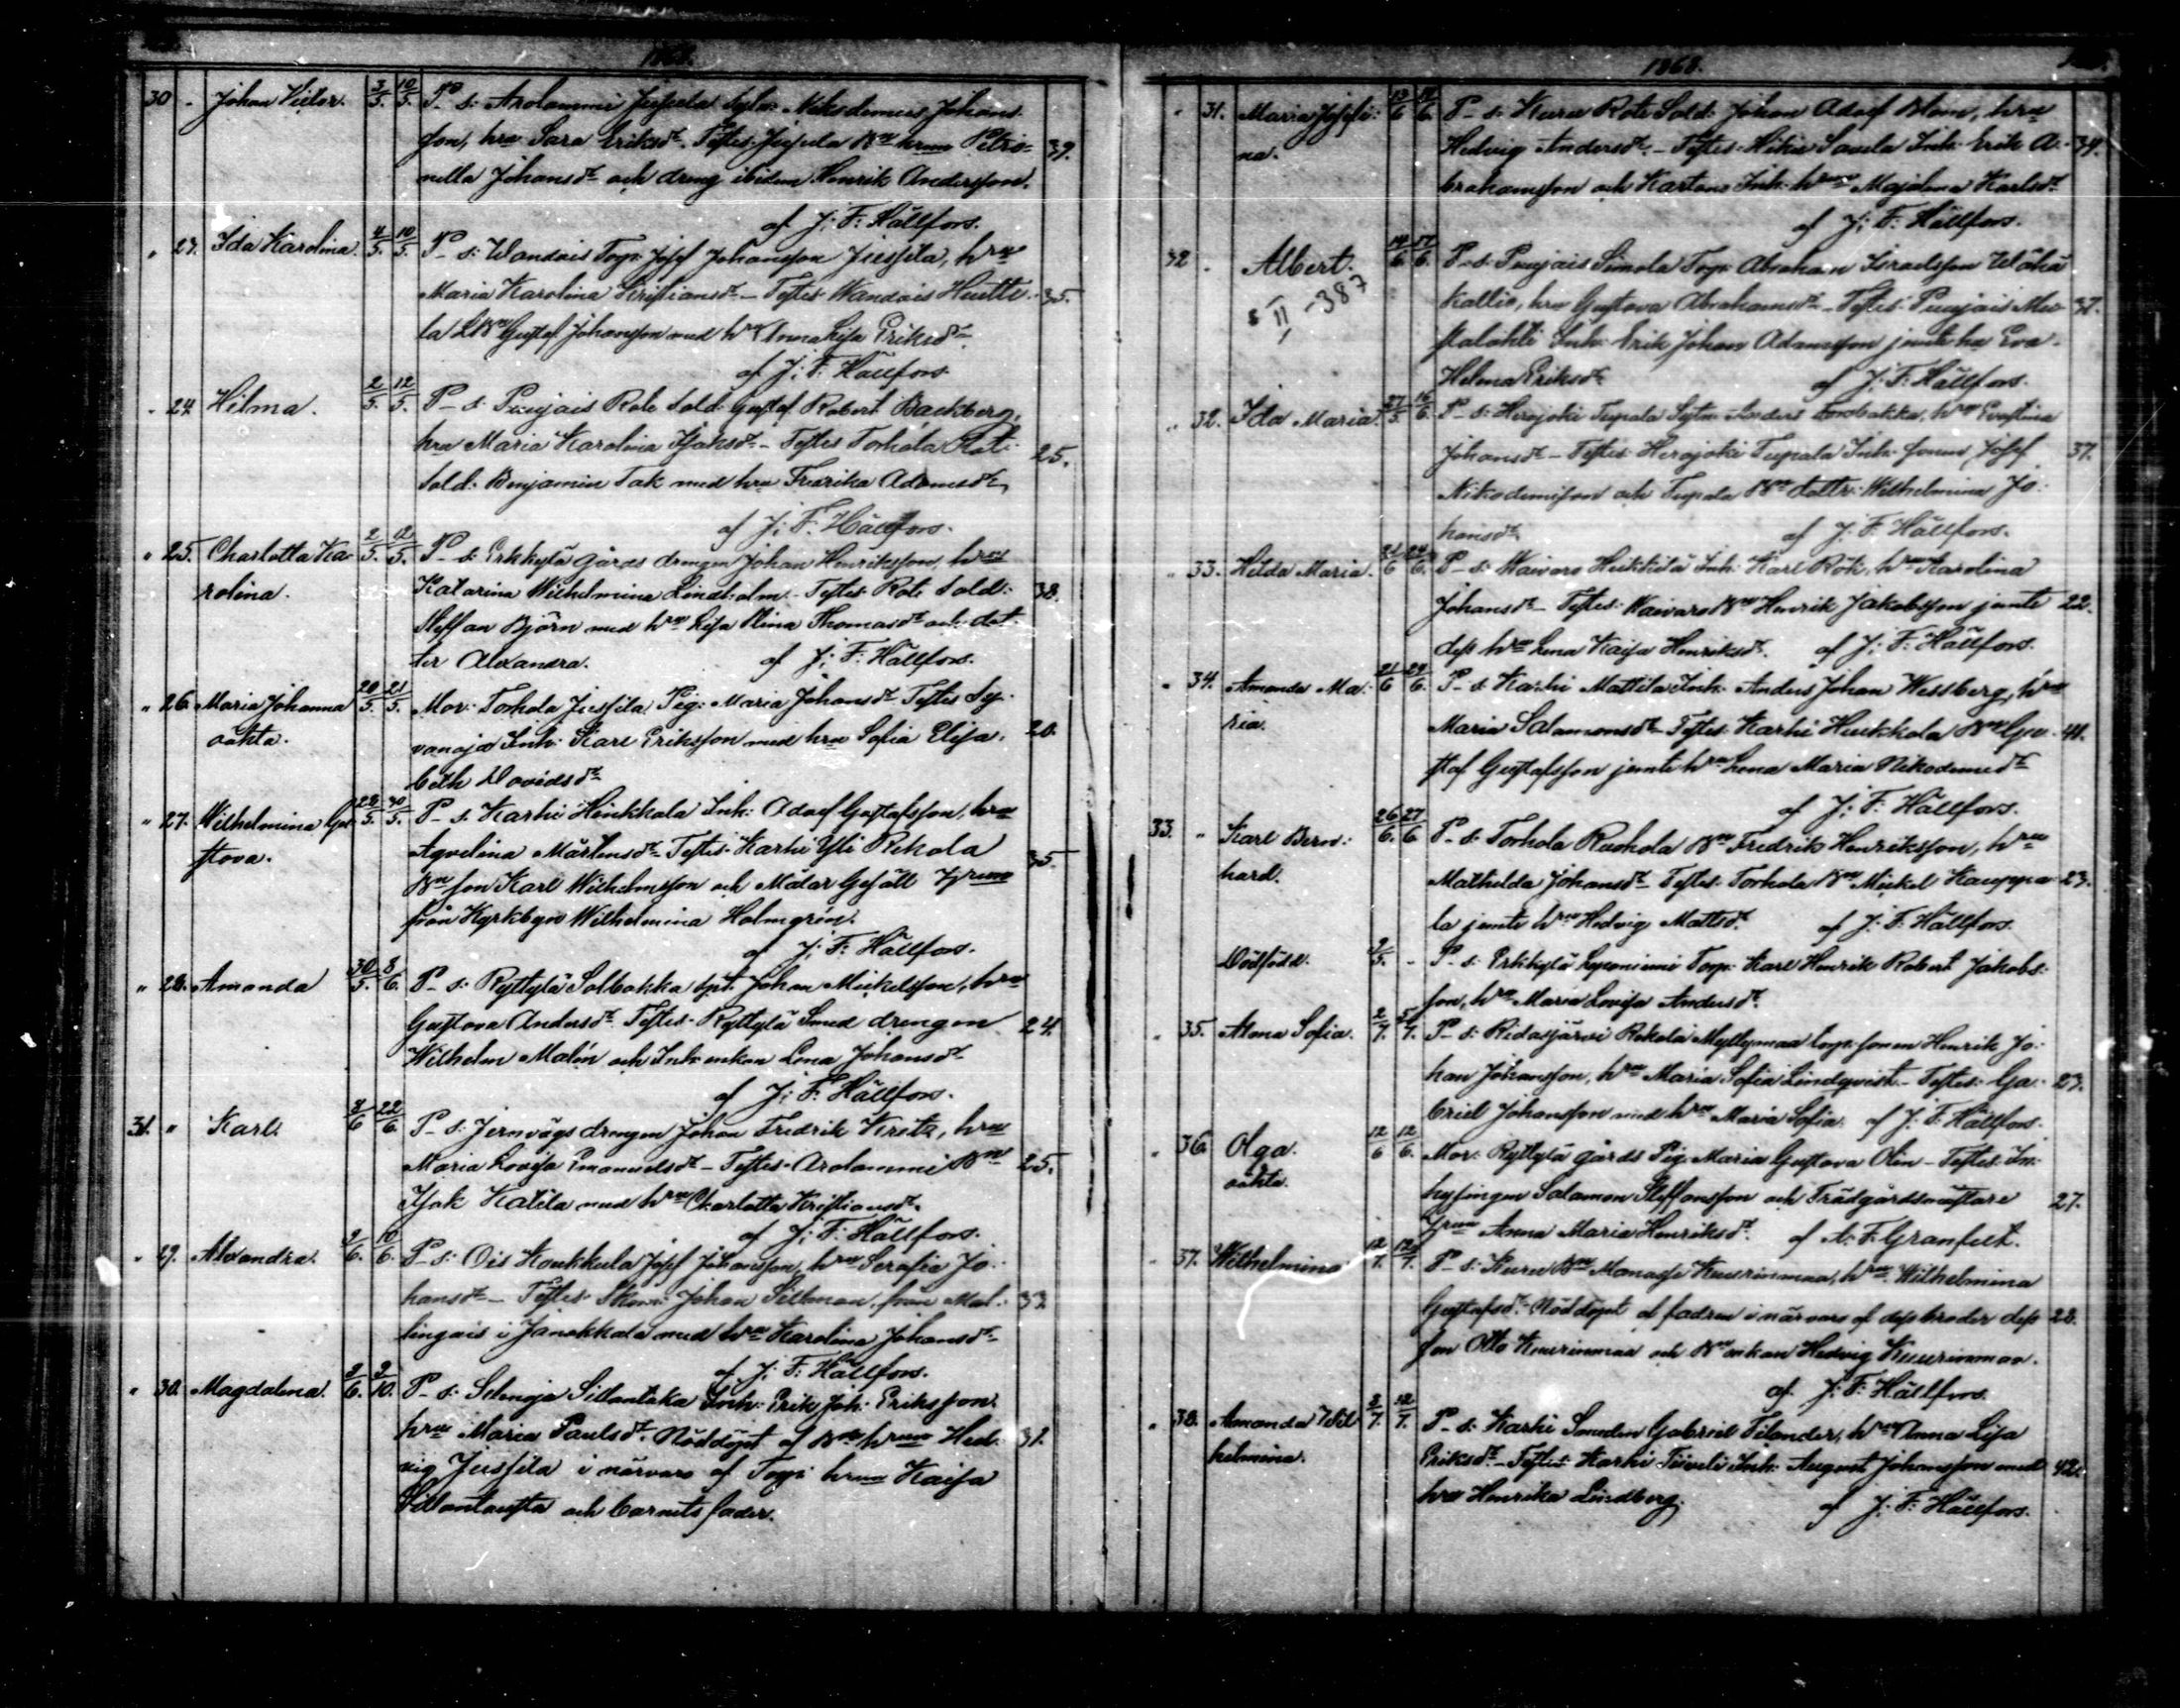 1868.
30 - Johan Victor. 3/5. 10/5. P-s: Arolammi Jussela Sytn: Nikodemus Johans-
son, hru Sara Eriksdr. Testes: Jussela Bn hrun Petro- 39.
nella Johansdr och dreng ibidem Henrik Andersson.
af J: F: Hällfors.
" 23. Ida Karolina. 4/5. 10/5. P-s: Wandais Torp: Josef Johansson Jussila, hru
Maria Karolina Kristiansdr - Testes: Wandais Huitti- 35.
la Bn Gustaf Johansson med hru Anna Lisa Eriksdr.
af J: F: Hällfors
" 24. Hilma. 2/5. 12/5. P-s: Puujais Rote Sold: Gustaf Robert Backberg,
hru Maria Karolina Isaksdr - Testes Torhola Rot: 25.
Sold: Benjamin Tak med hru Fredrika Adamsdr
af J: F: Hällfors.
" 25. Charlotta Ka- 2/5. 12/5. P-s: Erkkylä gårds drengen Johan Henriksson, hru
rolina. Katarina Wilhelmina Lindholm - Testes: Rote Sold: 38.
Steffan Björn med hru Lisa Stina Thomasdr och dot-
ter Alexandra. af J: F: Hällfors.
" 26. Maria Johanna 20/5. 21/5. Mor: Torhola Jussila Pig: Maria Johansdr Testes Sy-
oäkta. vänoja Inh: Karl Eriksson med hru Sofia Elisa- 20.
beth Davidsdr
" 27. Wilhelmina Gu- 5. 30/5. P-s: Karhi Heikkola Inh: Adolf Gustafsson, hru
stova. Agvelina Mårtensdr - Testes: Karhi Yli Rekola 35.
Bn son Karl Wilhelmsson och Målar Gesäll hrun
från Kyrkbyn Wilhelmina Holmgrén.
af J: F: Hällfors.
" 28. Amanda 30/5. 8/6. P-s: Ryttylä Solbakka Johan Mickelsson, hru
Gustova Andersdr. Testes: Ryttylä Smed drengen 24.
Wilhelm Malén och Inh: enkan Lena Johansdr
af J: F: Hällfors.
31. " Karl. 8/6 22/6. P-s: Jernvägs drengen Johan Fredrik Kreita, hru
Maria Lovisa Emanuelsdr - Testes: Arolammi Bn 25.
Isak Katila med hru Charlotta Kristiansdr.
af J: F: Hällfors.
" 29. Alexandra. 2/6. 10/6. P-s: Ois Koukkula Josef Johansson, hru Serafia Jo-
hansdr - Testes Skom: Johan Sillman, från Mal- 33.
lingais i Janakkala med hru Karolina Johansdr
af J: F: Hällfors.
" 30. Magdalena. 2/6. 2/10. P-s: Selänoja Sillantaka Inh: Erik Joh: Eriksson,
hru Maria Paulsdr. Nöddöpt af Bn hrun Hed- 31.
vig Jussila i närvaro af Torp: hrun Kaisa
Sillantausta och barnets fader.
1868.
" 31. Maria Josefi- 13/6 6. P-s: Kuru Rote Sold: Johan Adolf Blom, hru
na. Hedvig Andersdr. - Testes: Hikiä Inh: Erik A- 34.
brahamsson och Kartano Inh: hrun Majalena Karlsdr
af J: F: Hällfors.
32 - Albert. 14/6. 17/6. P-s: Puujais Simola Torp: Abraham Israelsson Wähä
II - 387 kallio, hru Gustova Abrahamsdr - Testes: Puujais Mu- 37.
stalahti Inh: Erik Johan Adamsson jemte hu Eva
Helena Eriksdr. af J: F: Hällfors.
" 32. Ida Maria. 27/5. 16/6. P-s: Herajoki Tupala Sytn: Anders Lindbakka, hru Evastina
Johansdr - Testes: Herajoki Tupala Inh: sonen Josef 37.
Nikodemisson och Tupala Bn dottr: Wilhelmina Jo-
hansdr. af J: F: Hällfors.
" 33. Hilda Maria. 21/6 24/6. P-s: Waivaro Heikkilä Inh: Karl Rök, hru Karolina
Johansdr - Testes: Waivaro Bn Henrik Jakobsson jemte 22.
dess hru Lena Kaisa Henriksdr. af J: F: Hällfors.
" 34. Amanda Ma- 21/6 24/6. P-s: Karhi Mattila Inh: Anders Johan Wessberg, hru
ria. Maria Salamonsdr - Testes: Karhi Heikkola Bn Gu- 41.
staf Gustafsson jemte hru Lena Maria Nikodemidr
af J: F: Hällfors.
33. " Karl Bern- 26/6. 27/6 P-s: Torhola Ruohola Bn Fredrik Henriksson, hru
hard. Mathilda Johansdr Testes: Torhola Bn Mickel Kauppa- 23.
la jemte hru Hedvig Mattsdr. af J: F: Hällfors.
Dödfödd. 2/5. - P-s: Erkkylä Leponiemi Torp: Karl Henrik Robert Jakobs-
son, hru Maria Lovisa Andersdr.
" 35. Alma Sofia. 2/7. 5/7. P-s: Ridasjärvi Rekola Myllymaa torp: sonen Henrik Jo-
han Johansson, hru Maria Sofia Lindqvist - Testes: Ga- 23.
briel Johansson med hru Maria Sofia. af J: F: Hällfors.
" 36 Olga. 12/6 12/6. Mor: Ryttylä gårds Pig: Maria Gustova Olin - Testes: In-
oäkta. hysingen Salamon Steffansson och Trädgårdsmästare 27.
hrun Anna Maria Henriksdr. af A: F: Granfelt.
" 37. Wilhelmina 12/7. 12/7. P-s: Kuru Bn Manasse Kuurinmaa, hru Wilhelmina
Gustafsdr. Nöddöpt af fadren i närvaro af dess broder dess 28.
son Otto Kuurinmaa och Bn enkan Hedvig Kuurinmaa.
af J: F: Hällfors.
" 38. Amanda Wil- 2/7. 12/7. P-s: Karhi Smeden Gabriel Tilander, hru Anna Lisa
helmina. Eriksdr - Testes: Karhi Inh: August Johansson med 42.
hru Henrika Lindberg. af J: F: Hällfors.